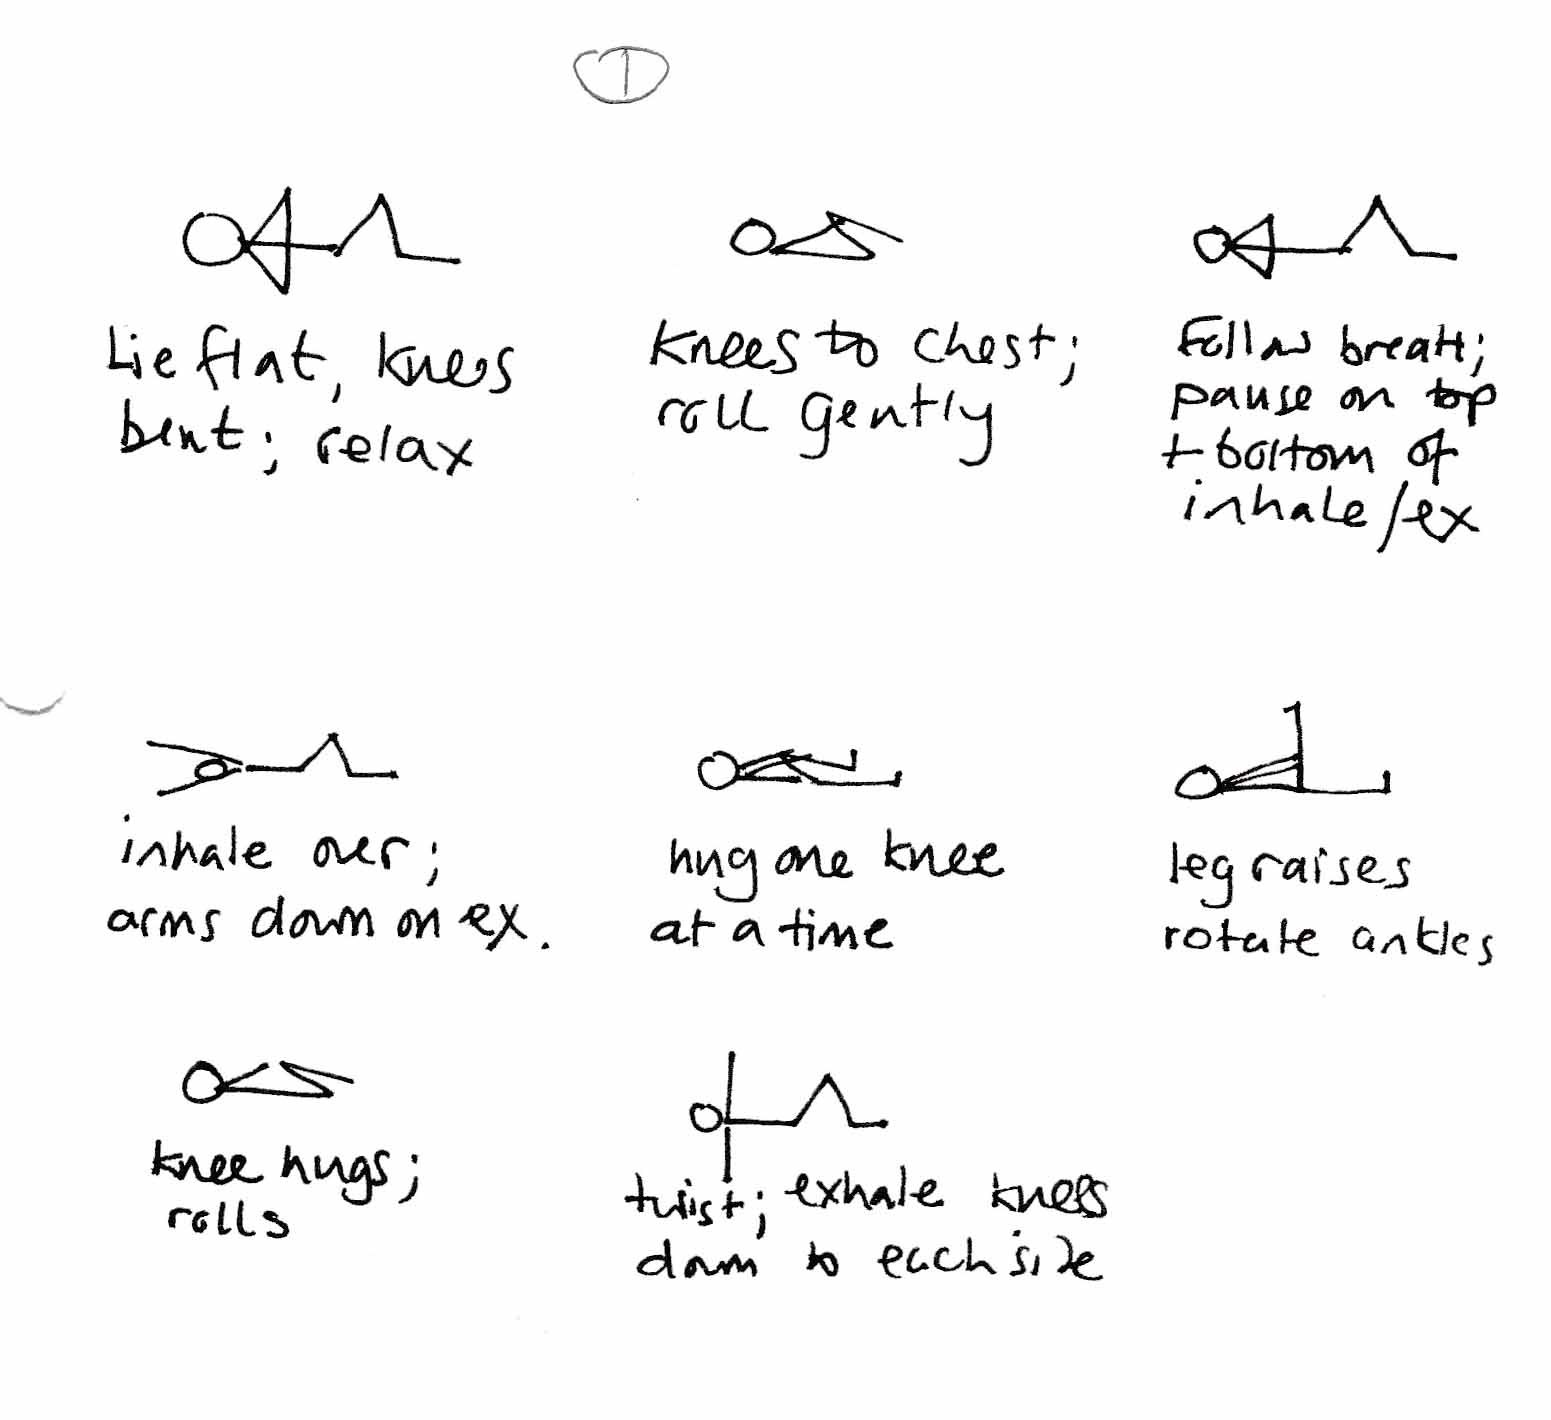 1
Lie flat, knees
bent; relax
Knees to chest;
roll gently
Follow breath;
pause on top
+ bottom of
inhale/ex
inhale over;
arms down on ex.
hug one knee
at a time
leg raises
rotate ankles
knee hugs;
rolls
twist; exhale knees
down to each side